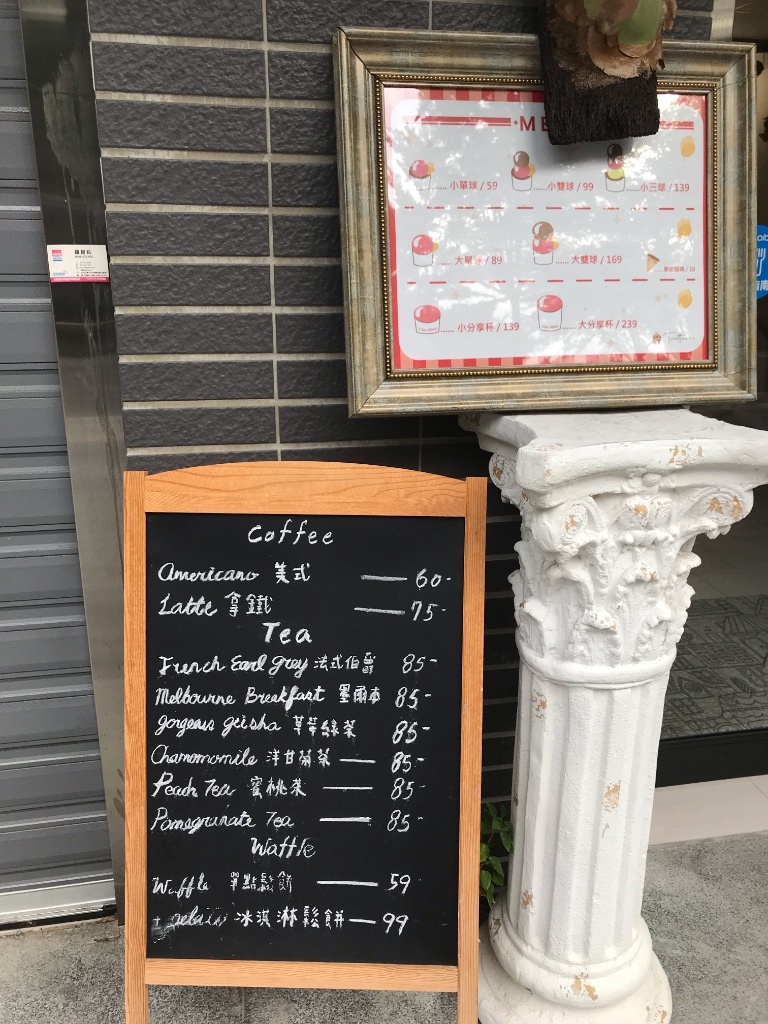 小單球 / 59
小雙球 / 99
小三球 / 139
大單球 / 89
大雙球 / 169
小分享杯 / 139
大分享杯 / 239
Coffee
Americano 美式 60-
Latte 拿鐵 75-
Tea
French Earl grey 法式伯爵 85-
Melbourne Breakfast 墨爾本 85-
gorgeous geisha 草莓綠茶 85-
Chamomomile 洋甘菊茶 85-
Peach Tea 蜜桃茶 85-
Pomegranate Tea 85-
Waffle
Waffle 單點鬆餅 59
冰淇淋鬆餅 99